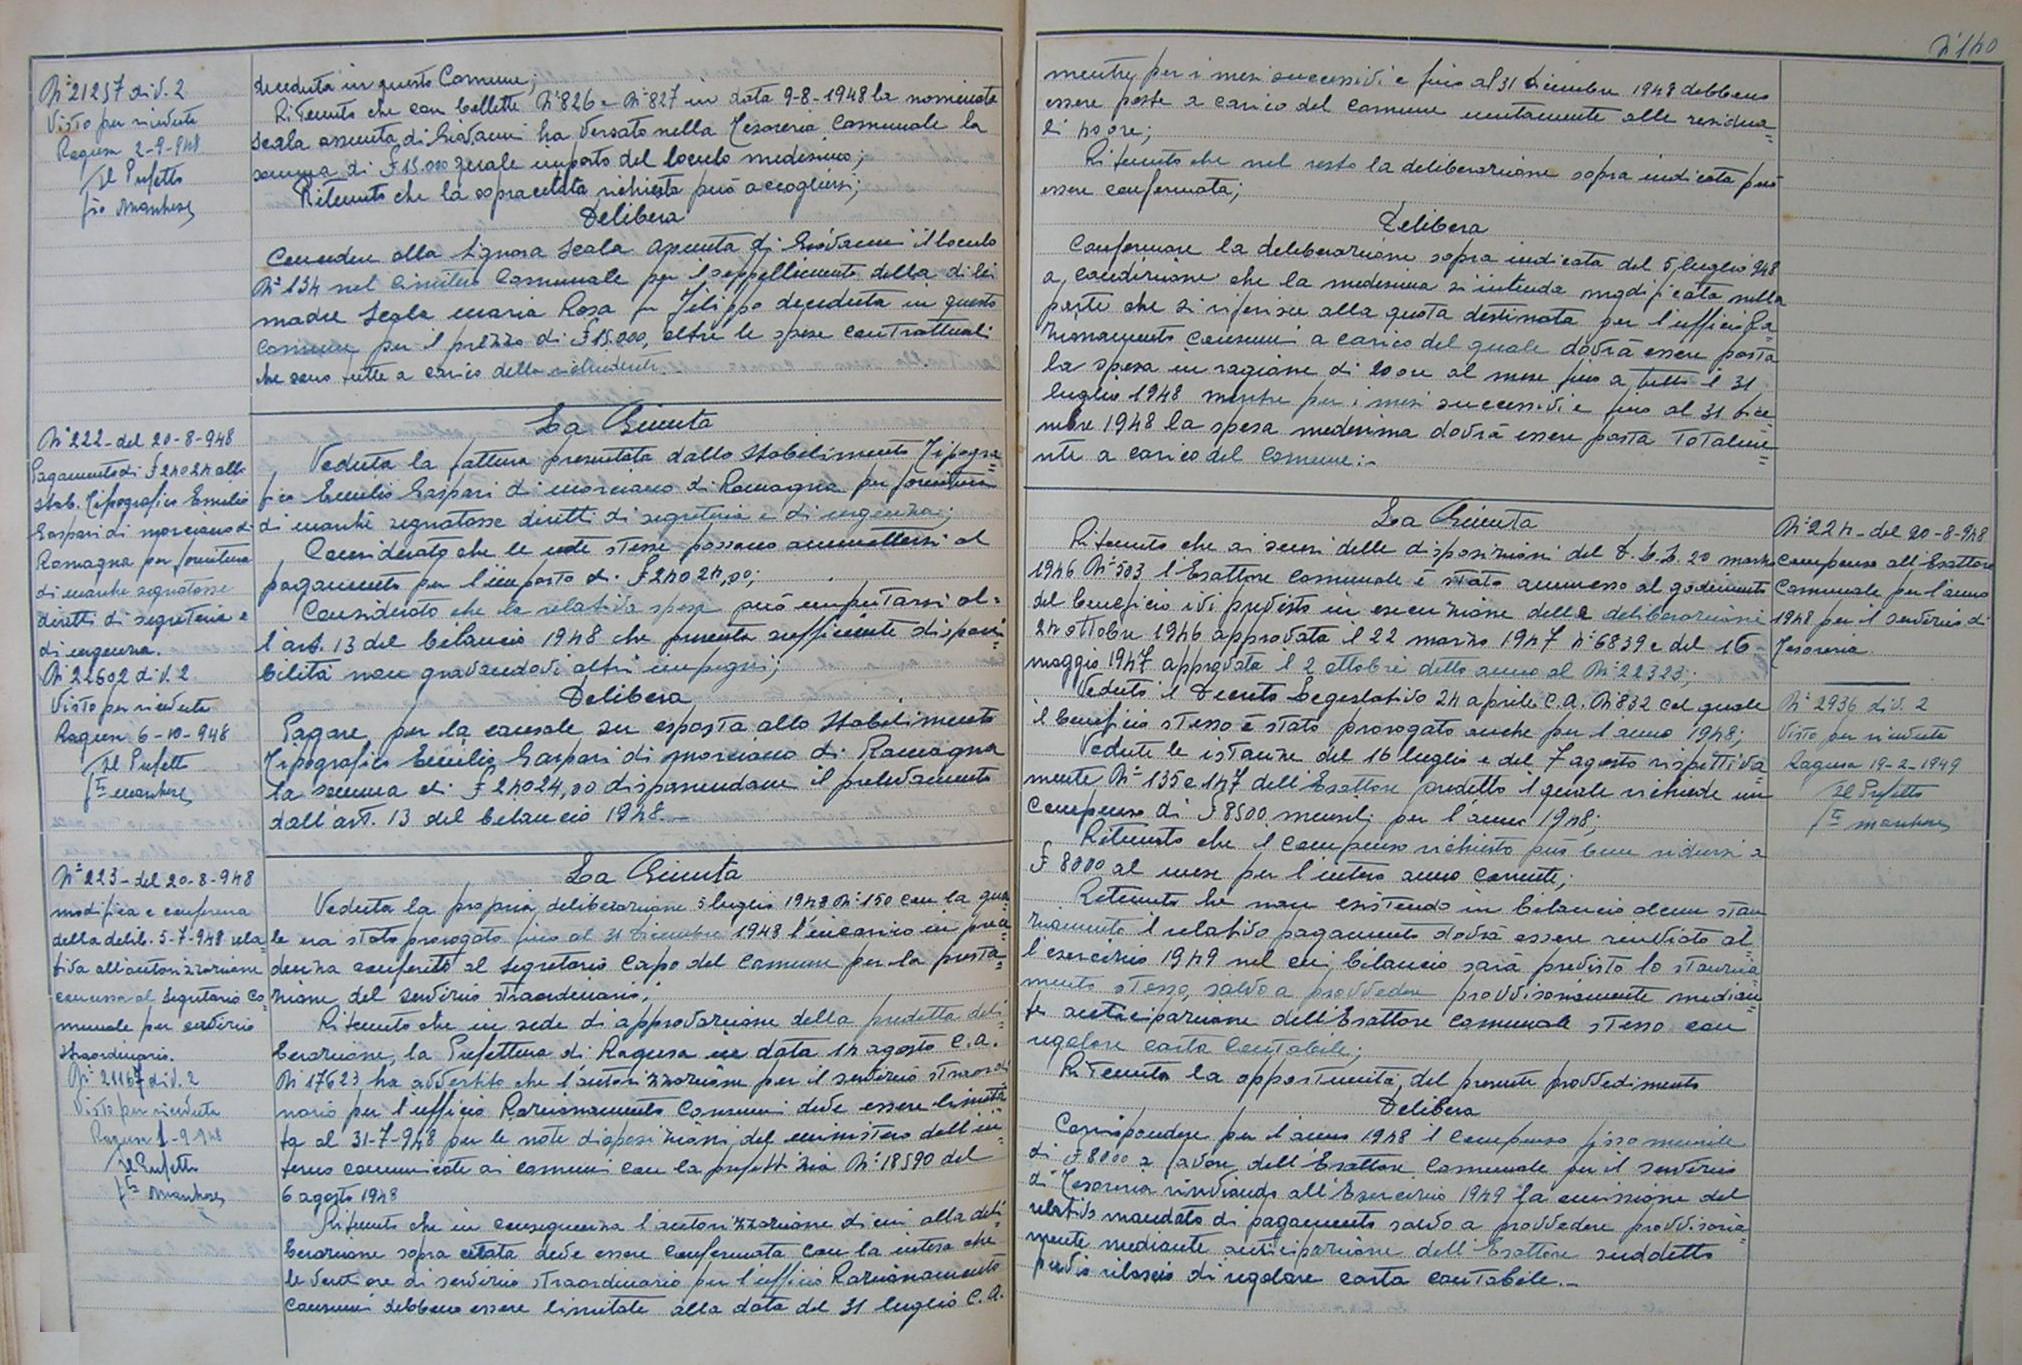 N° 21257 div. 2
Visto per ricevuta
Ragusa 2-9-948
Il Prefetto
f.to Marchese
deceduta in questo Comune;
Ritenuto che con bollette N° 826 e N° 827 in data 9-8-1948 la nominata
Scala Assunta di Giovanni ha versato nella Tesoreria Comunale la
somma di £ 15.000 quale importo del loculo medesimo;
Ritenuto che la sopracitata richiesta può accogliersi;
Delibera
Concedere alla Signora Scala Assunta di Giovanni il loculo
N° 134 nel Cimitero Comunale per il seppellimento della di lei
madre Scala Maria Rosa fu Filippo deceduta in questo
Comune per il prezzo di £ 15.000, oltre le spese contrattuali
che sono tutte a carico della richiedente.
N° 222 - del 20-8-948
Pagamento di £ 24024 allo
Stab. Tipografico Emilio
Gaspari di Morciano di
Romagna per fornitura
di marche segnatasse
diritti di segreteria e
di urgenza.
N° 22602 div. 2
Visto per ricevuta
Ragusa 6-10-948
Il Prefetto
f.to Marchese
La Giunta
Veduta la fattura presentata dallo Stabilimento Tipogra=
fico Emilio Gaspari di Morciano di Romagna per fornitura
di marche segnatasse diritti di segreteria e di urgenza;
Considerato che le note stesse possono ammettersi al
pagamento per l'importo di £ 24024,00;
Considerato che la relativa spesa può imputarsi al=
l'art. 13 del bilancio 1948 che presenta sufficiente disponi=
bilità non gravandovi altri impegni;
Delibera
Pagare, per la causale su esposta allo Stabilimento
Tipografico Emilio Gaspari di Morciano di Romagna
la somma di £ 24024,00 disponendone il prelevamento
dall'art. 13 del bilancio 1948.-
N° 223 - del 20-8-948
modifica e conferma
della delib. 5-7-948 rela=
tiva all'autorizzazione
concessa al Segretario Co=
munale per servizio
straordinario.
N° 21167 div. 2
Visto per ricevuta
Ragusa 1-9-948
Il Prefetto
f.to Marchese
La Giunta
Veduta la propria deliberazione 5 luglio 1948 N° 150 con la qua=
le era stato prorogato fino al 31 dicembre 1948 l'incarico in prece=
denza conferito al Segretario Capo del Comune per la presta=
zione del servizio straordinario;
Ritenuto che in sede di approvazione della predetta deli=
berazione, la Prefettura di Ragusa in data 14 agosto c.a.
N° 17623 ha avvertito che l'autorizzazione per il servizio straordi=
nario per l'ufficio Razionamento Consumi deve essere limita=
ta al 31-7-948 per le note disposizioni del Ministero dell'in=
terno comunicate ai comuni con la prefettizia N° 18590 del
6 agosto 1948
Ritenuto che in conseguenza l'autorizzazione di cui alla deli=
berazione sopra citata deve essere confermata con la intesa che
le venti ore di servizio straordinario per l'ufficio Razionamento
Consumi debbono essere limitate alla data del 31 luglio c.a.
N° 140
mentre per i mesi successivi e fino al 31 dicembre 1948 debbono
essere poste a carico del Comune unitamente alle residua=
li 40 ore;
Ritenuto che nel resto la deliberazione sopra indicata può
essere confermata;
Delibera
Confermare la deliberazione sopra indicata del 5 luglio 948
a condizione che la medesima si intenda modificata nella
parte che si riferisce alla quota destinata per l'ufficio Ra=
zionamento Consumi a carico del quale dovrà essere posta
la spesa in ragione di 20 ore al mese fino a tutto il 31
luglio 1948 mentre per i mesi successivi e fino al 31 dice=
mbre 1948 la spesa medesima dovrà essere posta totalme=
nte a carico del Comune:-
La Giunta
Ritenuto che ai sensi delle disposizioni del D.L.L. 20 marzo
1946 N° 503 l'Esattore Comunale è stato ammesso al godimento
del beneficio ivi previsto in esecuzione delle deliberazioni
24 ottobre 1946 approvata il 22 marzo 1947 N° 6839 e del 16
maggio 1947 approvata il 2 ottobre dello anno al N° 22323;
Veduto il Decreto Legislativo 24 aprile c.a. N° 832 col quale
il beneficio stesso è stato prorogato anche per l'anno 1948;
Vedute le istanze del 16 luglio e del 7 agosto rispettiva=
mente N° 135 e 147 dell'Esattore predetto il quale richiede un
compenso di £ 8500 mensili per l'anno 1948;
Ritenuto che il compenso richiesto può bene ridursi a
£ 8000 al mese per l'intero anno corrente;
Ritenuto che non esistendo in bilancio alcun stan=
ziamento il relativo pagamento dovrà essere rinviato al=
l'esercizio 1949 nel cui bilancio sarà previsto lo stanzia=
mento stesso, salvo a provvedere provvisoriamente median=
te anticipazione dell'Esattore Comunale stesso con
regolare carta contabile;
Ritenuta la opportunità, del presente provvedimento
Delibera
Corrispondere per l'anno 1948 il compenso fisso mensile
di £ 8000 a favore dell'Esattore Comunale per il servizio
di Tesoreria rinviando all'Esercizio 1949 la emissione del
relativo mandato di pagamento salvo a provvedere provvisoria=
mente mediante anticipazione dell'Esattore suddetto
previo rilascio di regolare carta contabile.-
N° 224 - del 20-8-948
Compenso all'Esattore
Comunale per l'anno
1948 per il servizio di
Tesoreria
N° 2936 div. 2
Visto per ricevuta
Ragusa 19-2-1949
Il Prefetto
f.to Marchese